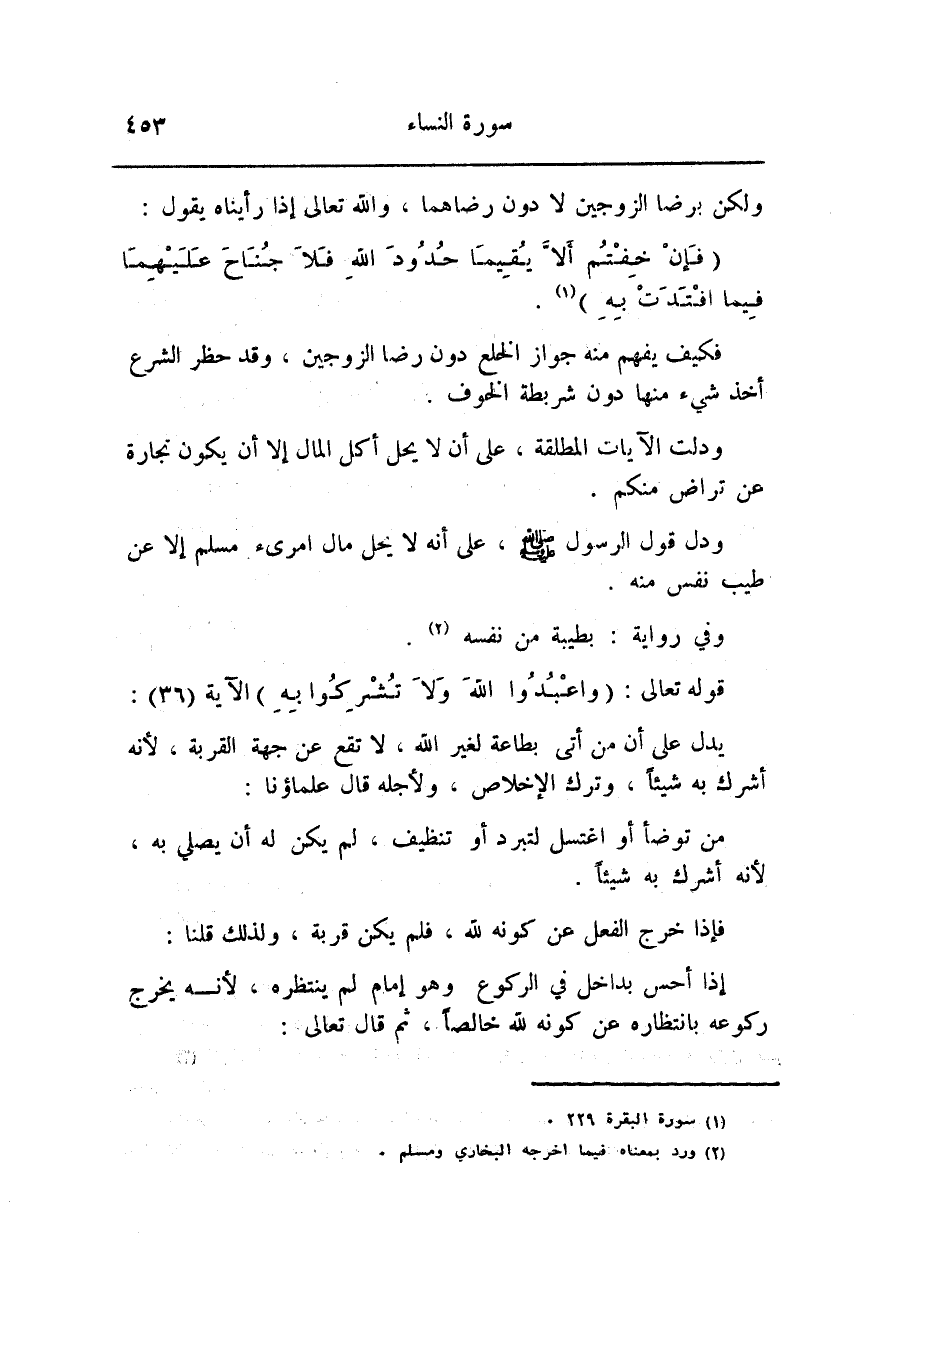 سورة النساء ٤٥٣
ولكن برضا الزوجين لا دون رضاهما ، والله تعالى إذا رأيناه يقول :
( فَإِنْ خِفْتُم أَلاَّ يُقِيمَا حُدُودَ اللهِ فَلاَ جُنَاحَ عَلَيْهِمَا
فِيما افْتَدَتْ بِهِ )(١) .
فكيف يفهم منه جواز الخلع دون رضا الزوجين ، وقد حظر الشرع
أخذ شيء منها دون شريطة الخوف .
ودلت الآيات المطلقة ، على أن لا يحل أكل المال إلا أن يكون تجارة
عن تراض منكم .
ودل قول الرسول ﷺ ، على أنه لا يحل مال امرىء مسلم إلا عن
طيب نفس منه .
وفي رواية : بطيبة من نفسه (٢) .
قوله تعالى : ( واعْبُدُوا اللهَ وَلاَ تُشْرِكُوا بِهِ ) الآية (٣٦) :
يدل على أن من أتى بطاعة لغير الله ، لا تقع عن جهة القربة ، لأنه
أشرك به شيئاً ، وترك الإخلاص ، ولأجله قال علماؤنا :
من توضأ أو اغتسل لتبرد أو تنظيف ، لم يكن له أن يصلي به ،
لأنه أشرك به شيئاً .
فإذا خرج الفعل عن كونه لله ، فلم يكن قربة ، ولذلك قلنا :
إذا أحس بداخل في الركوع وهو إمام لم ينتظره ، لأنـــه يخرج
ركوعه بانتظاره عن كونه لله خالصاً ، ثم قال تعالى :
(١) سورة البقرة ٢٢٩ .
(٢) ورد بمعناه فيما اخرجه البخاري ومسلم .